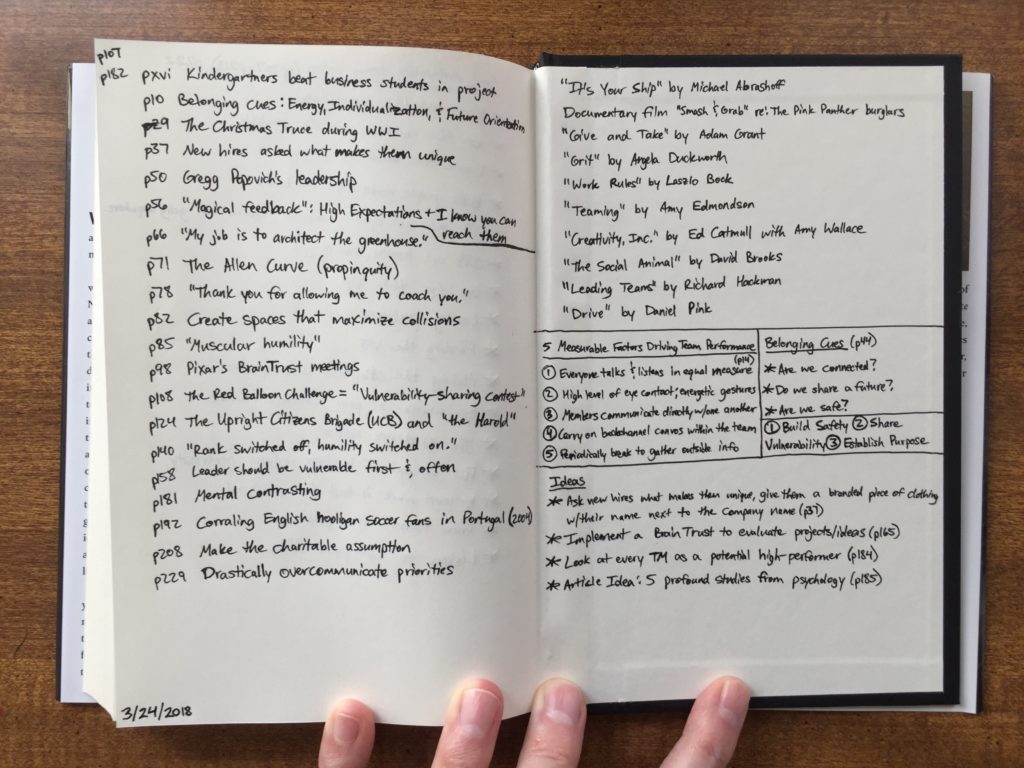 p107
p182
pxvi Kindergartners beat business students in project
p10 Belonging cues: Energy, Individualization, & Future Orientation
p29 The Christmas Truce during WWI
p37 New hires asked what makes them unique
p50 Gregg Popovich's leadership
p56 "Magical feedback": High Expectations + I know you can
reach them
p66 "My job is to architect the greenhouse."
p71 The Allen Curve (propinquity)
p78 "Thank you for allowing me to coach you."
p82 Create spaces that maximize collisions
p85 "Muscular humility"
p98 Pixar's BrainTrust meetings
p108 the Red Balloon Challenge = "Vulnerability-sharing contest"
p124 The Upright Citizens Brigade (UCB) and "the Harold"
p140 "Rank switched off, humility switched on."
p158 Leader should be vulnerable first & often
p181 Mental contrasting
p192 Corraling English hooligan soccer fans in Portugal (2004)
p208 Make the charitable assumption
p229 Drastically overcommunicate priorities
3/24/2018
"It's Your Ship" by Michael Abrashoff
Documentary film "Smash & Grab" re: The Pink Panther burglars
"Give and Take" by Adam Grant
"Grit" by Angela Duckworth
"Work Rules" by Laszlo Bock
"Teaming" by Amy Edmondson
"Creativity, Inc." by Ed Catmull with Amy Wallace
"The Social Animal" by David Brooks
"Leading Teams" by Richard Hackman
"Drive" by Daniel Pink
5 Measurable Factors Driving Team Performance
(p14)
① Everyone talks & listens in equal measure
② High level of eye contact; energetic gestures
③ Members communicate directly w/one another
④ Carry on backchannel convos within the team
⑤ Periodically break to gather outside info
Belonging Cues (p44)
* Are we connected?
* Do we share a future?
* Are we safe?
① Build Safety ② Share
Vulnerability ③ Establish Purpose
Ideas
* Ask new hires what makes them unique, give them a branded piece of clothing
w/their name next to the company name (p37)
* Implement a BrainTrust to evaluate projects/ideas (p165)
* Look at every TM as a potential high-performer (p184)
* Article Idea: 5 profound studies from psychology (p185)